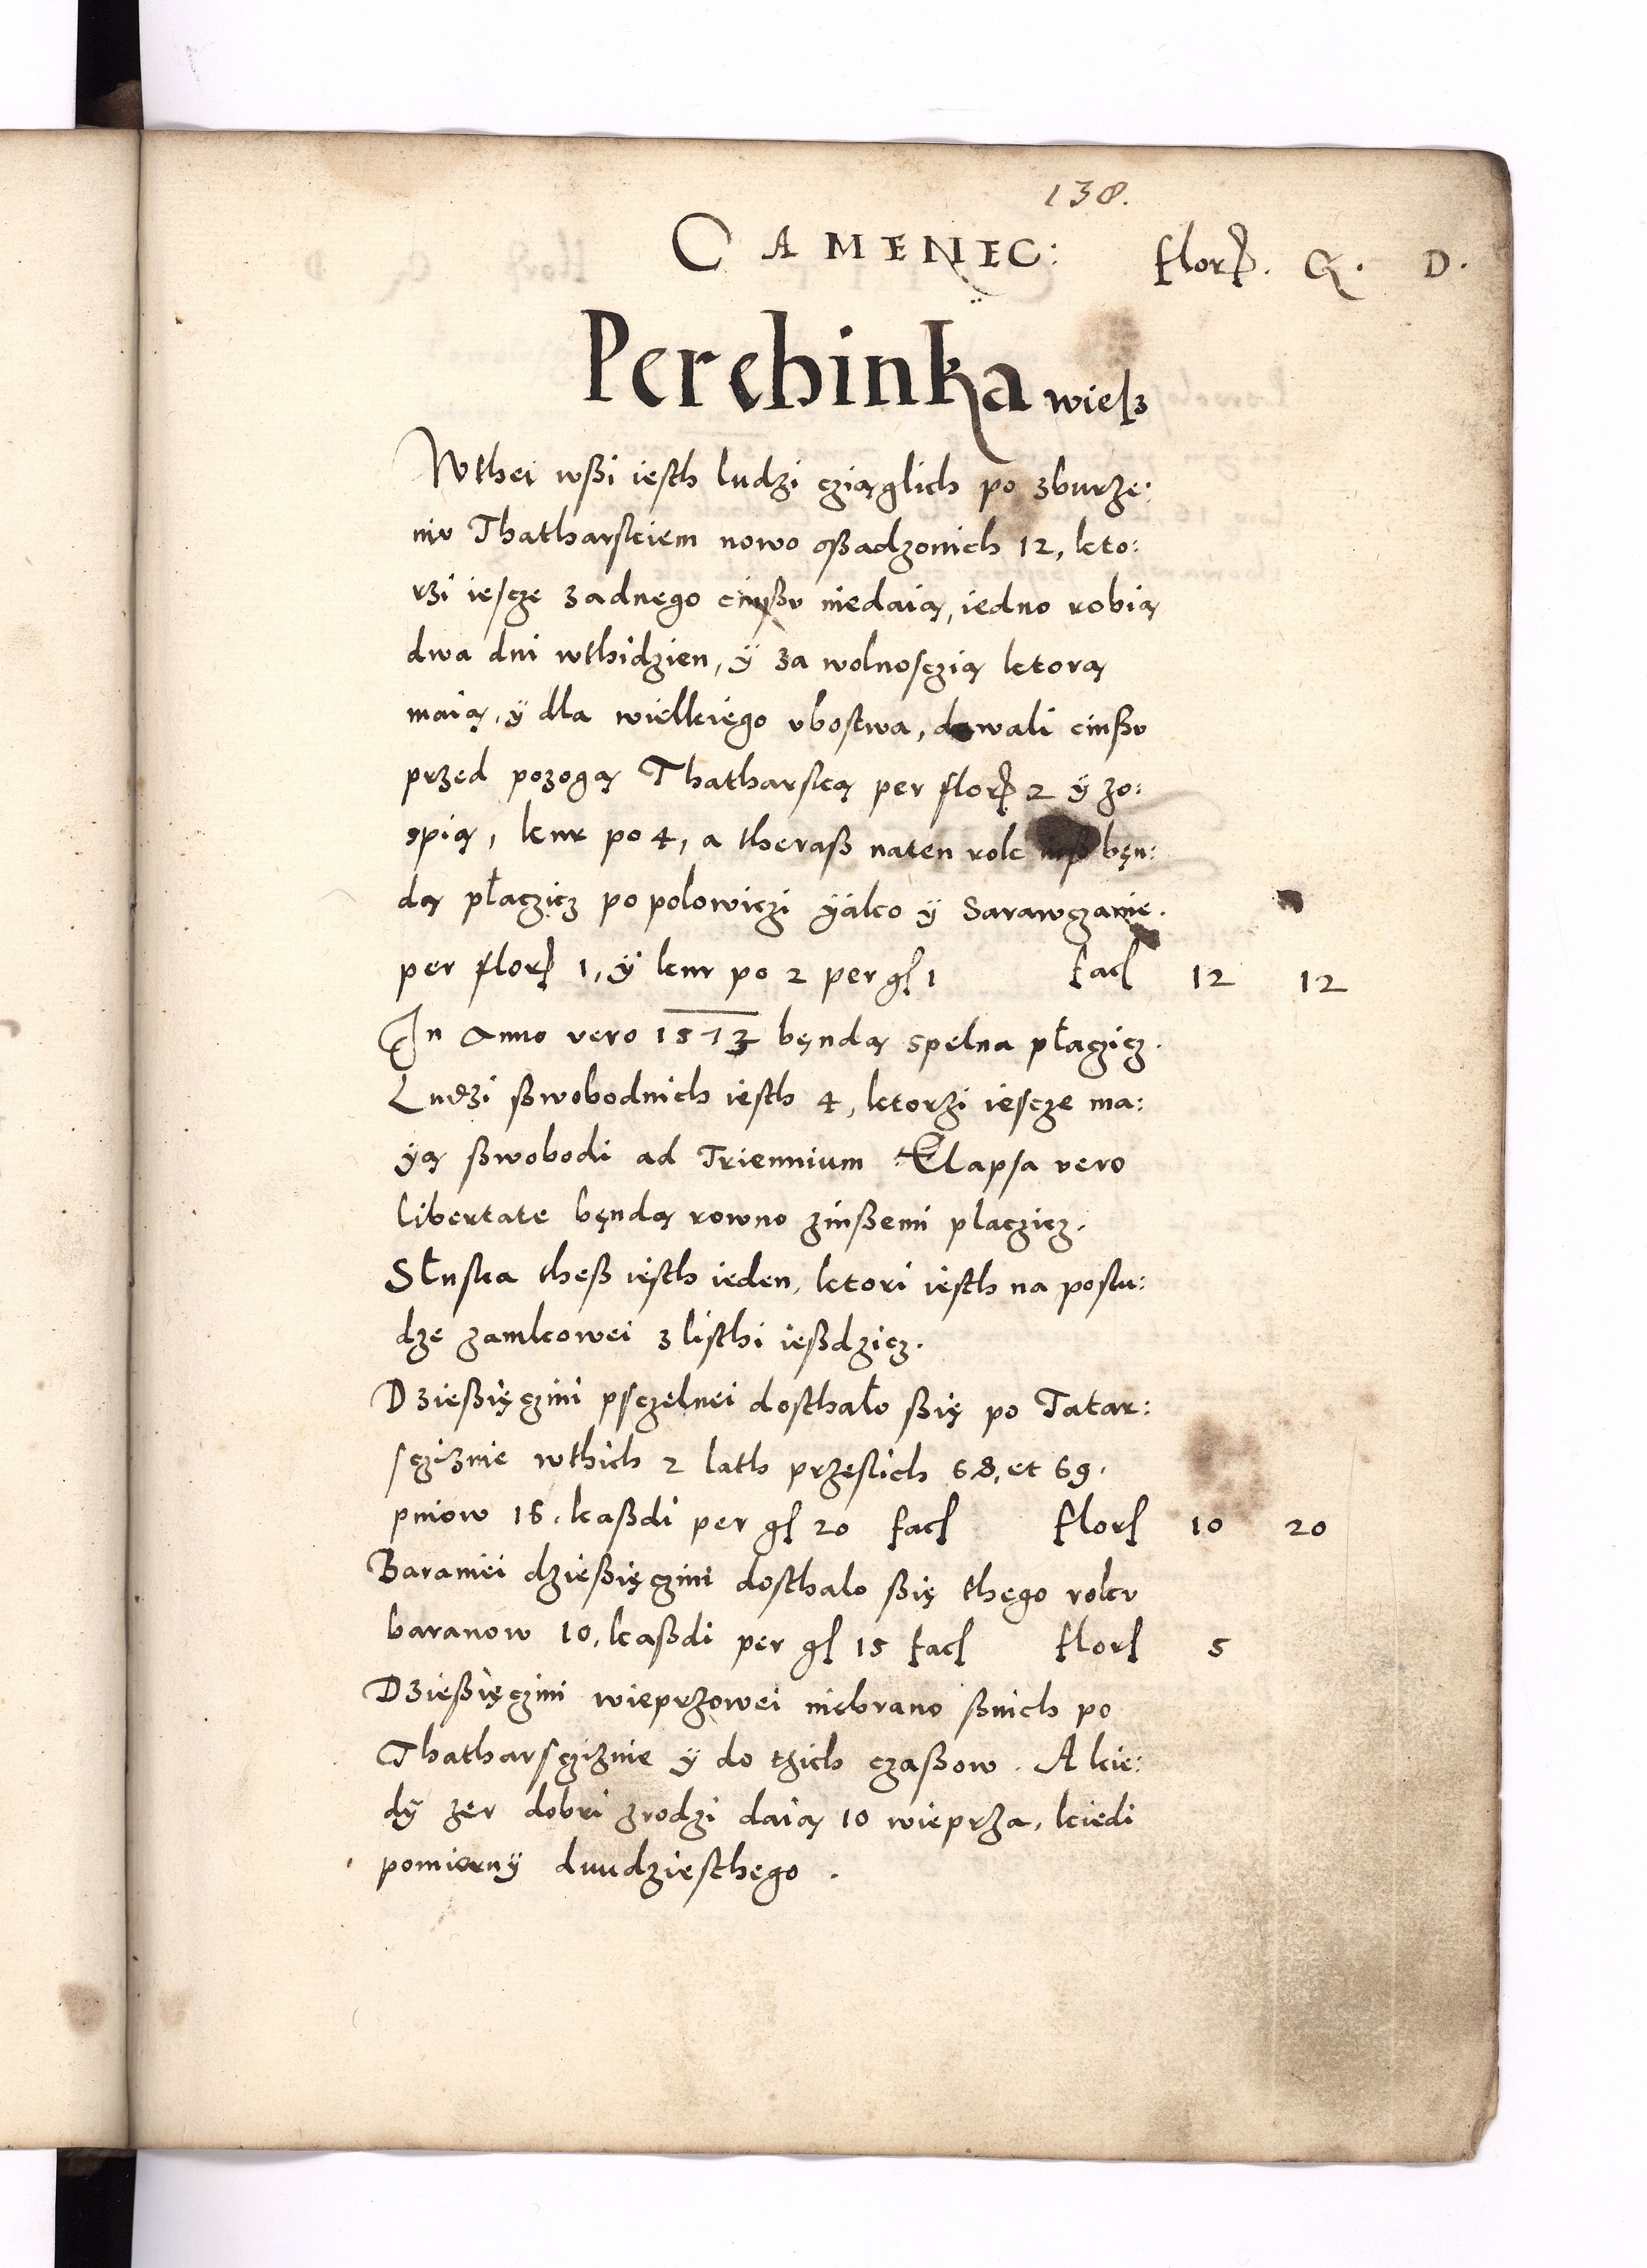 138.
CAMENEC: flor. G. D.
Perchinka wiesz
Wthei wßi iesth ludzi cziąglich po zburze:
niv Thatharskiem nowo oßadzonich 12, kto:
rzi iescze zadnego cinßv niedaią, iedno robią
dwa dni wthidzien, ÿ za wolnosczią ktorą
maią, ÿ dla wielkiego vbostwa, dawali cinßv
przed pozogą Thatharską per flor 2 ÿ zo:
spią, kur po 4, a theraß naten rok iuß bęn:
dą płaczicz po polowiczi ÿako ÿ Sarawczanie.
per flor 1, ÿ kur po 2 per gſ 1 facſ 12 12
In Anno vero 1573 bęndą spelna płaczicz.
Ludzi ßwobodnich iesth 4, ktorzi iescze ma:
ÿą ßwobodi ad Triennium Elapsa vero
libertate bęndą rowno zinßemi placzicz.
Słuska theß iesth ieden, ktori iesth na poslu:
dze zamkowei z listhi ießdzicz.
Dzießięczini psczelnei dosthało ßię po Tatar:
scziznie wthich 2 lath przeslich 68, et 69.
pniow 16, kaßdi per gſ 20 facſ florſ 10 20
Baraniei dzießięczini dosthalo ßię thego rokv
baranow 10, kaßdi per gſ 15 facſ florſ 5
Dzießięczini wieprzowei niebrano ßnich po
Thatharscziznie ÿ do tzich czaßow. A kie:
dÿ zer dobri zrodzi daią 10 wieprza, kiedi
pomiernÿ dwudziesthego.